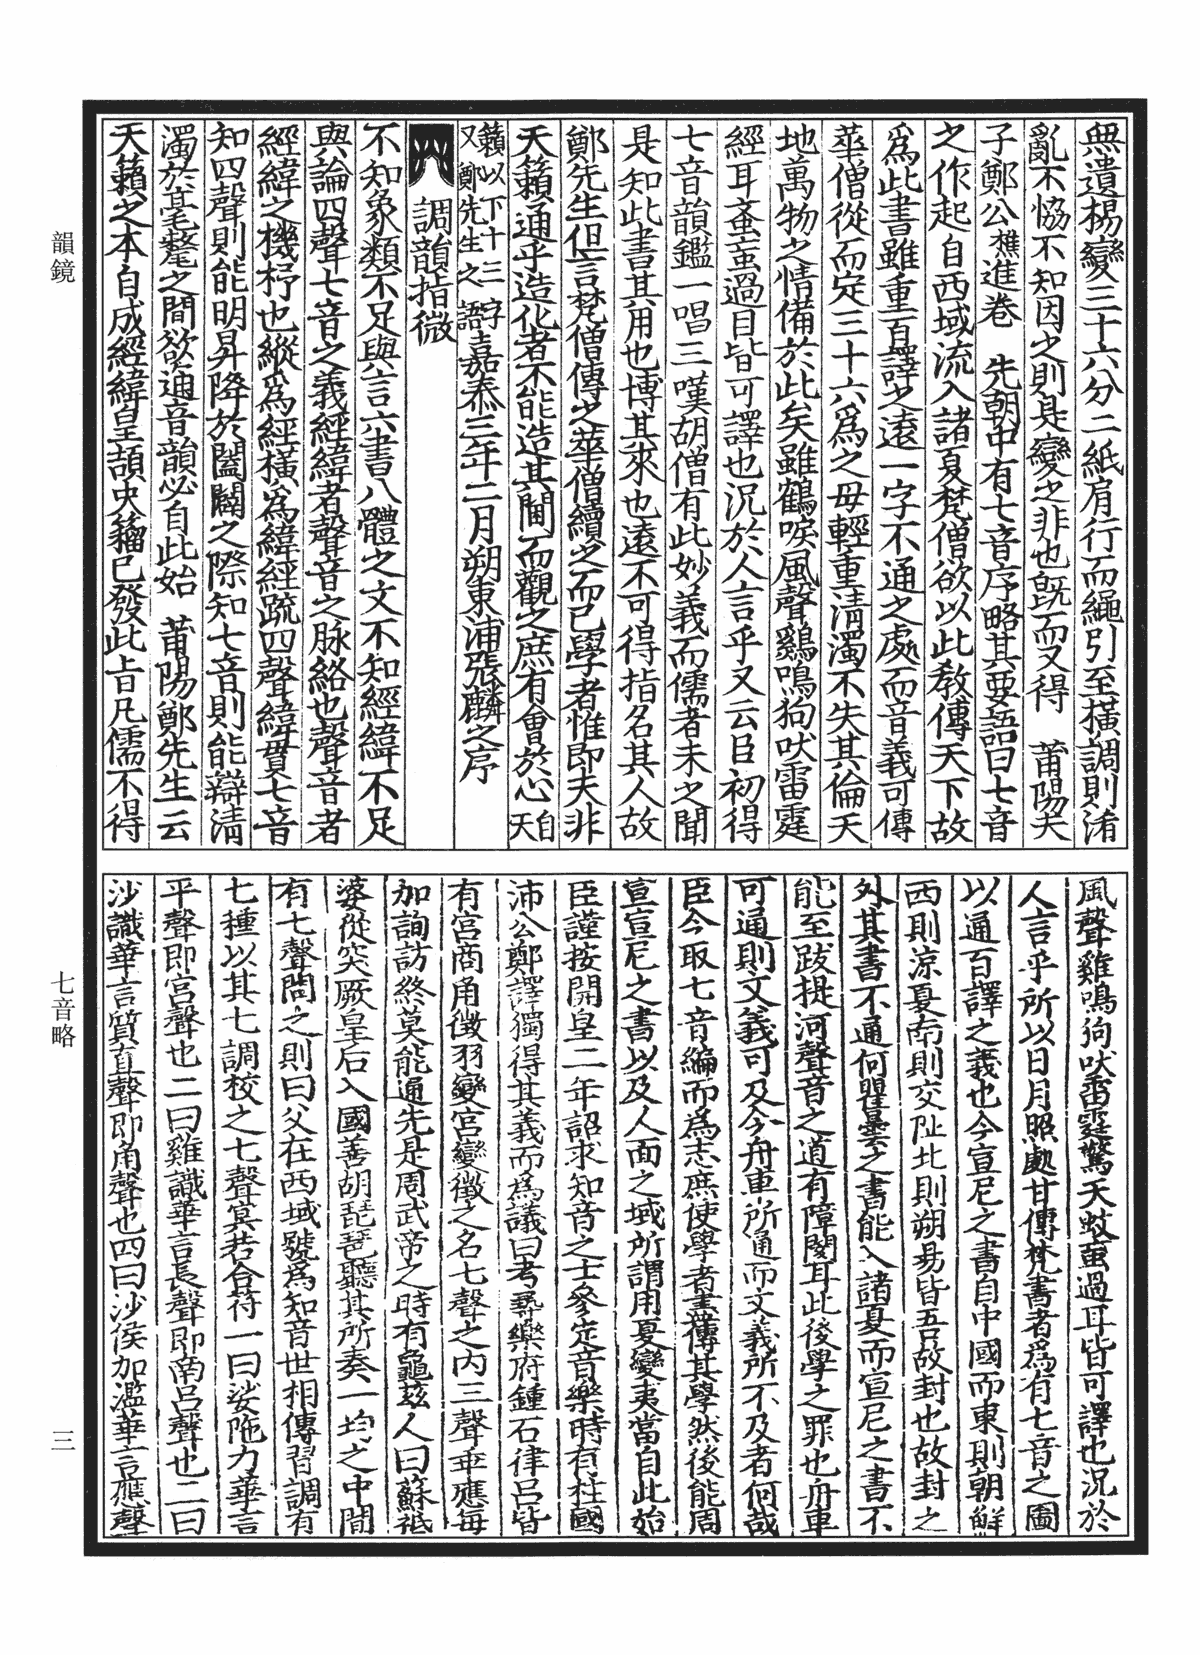 無遺楊變三十六分二紙肩行而繩引至橫調則淆
亂不恊不知因之則是變之非也旣而又得　莆陽夫
子鄭公樵進卷　先朝中有七音序略其要語曰七音
之作起自西域流入諸夏梵僧欲以此敎傳天下故
爲此書雖重百譯之遠一字不通之處而音義可傳
華僧從而定三十六爲之母輕重清濁不失其倫天
地萬物之情備於此矣雖鶴唳風聲鷄鳴狗吠雷霆
經耳蚉䖟過目皆可譯也况於人言乎又云臣初得
七音韻鑑一唱三嘆胡僧有此妙義而儒者未之聞
是知此書其用也博其來也遠不可得指名其人故
鄭先生但言梵僧傳之華僧續之而已學者惟即夫非
天籟通乎造化者不能造其閫而觀之庶有會於心自天
籟以下十三字又鄭先生之語嘉泰三年二月朔東浦張麟之序
調韻指微
不知象類不足與言六書八體之文不知經緯不足
與論四聲七音之義經緯者聲音之脉絡也聲音者
經緯之機杼也縱爲經橫爲緯經疏四聲緯貫七音
知四聲則能明昇降於闔闢之際知七音則能辯清
濁於毫氂之間欲通音韻必自此始　莆陽鄭先生云
天籟之本自成經緯皇頡史籒已發此旨凡儒不得
風聲雞鳴狗吠雷霆驚天蚊䖟過耳皆可譯也況於
人言乎所以日月照處甘傳梵書者爲有七音之圖
以通百譯之義也今宣尼之書自中國而東則朝鮮
西則涼夏南則交阯北則朔易皆吾故封也故封之
外其書不通何瞿曇之書能入諸夏而宣尼之書不
能至跋提河聲音之道有障閡耳此後學之罪也舟車
可通則文義可及今舟車所通而文義所不及者何哉
臣今取七音編而爲志庶使學者盡傳其學然後能周
宣宣尼之書以及人面之域所謂用夏變夷當自此始
臣謹按開皇二年詔求知音之士參定音樂時有柱國
沛公鄭譯獨得其義而爲議曰考尋樂府鍾石律呂皆
有宮商角徵羽變宮變徵之名七聲之內三聲乖應每
加詢訪終莫能通先是周武帝之時有龜兹人曰蘇祗
婆從突厥皇后入國善胡琵琶聽其所奏一均之中間
有七聲問之則曰父在西域號爲知音世相傳習調有
七種以其七調校之七聲冥若合符一曰娑陁力華言
平聲即宮聲也二曰雞識華言長聲即南呂聲也三曰
沙識華言質直聲即角聲也四曰沙侯加濫華言應聲
韻鏡
七音略
三